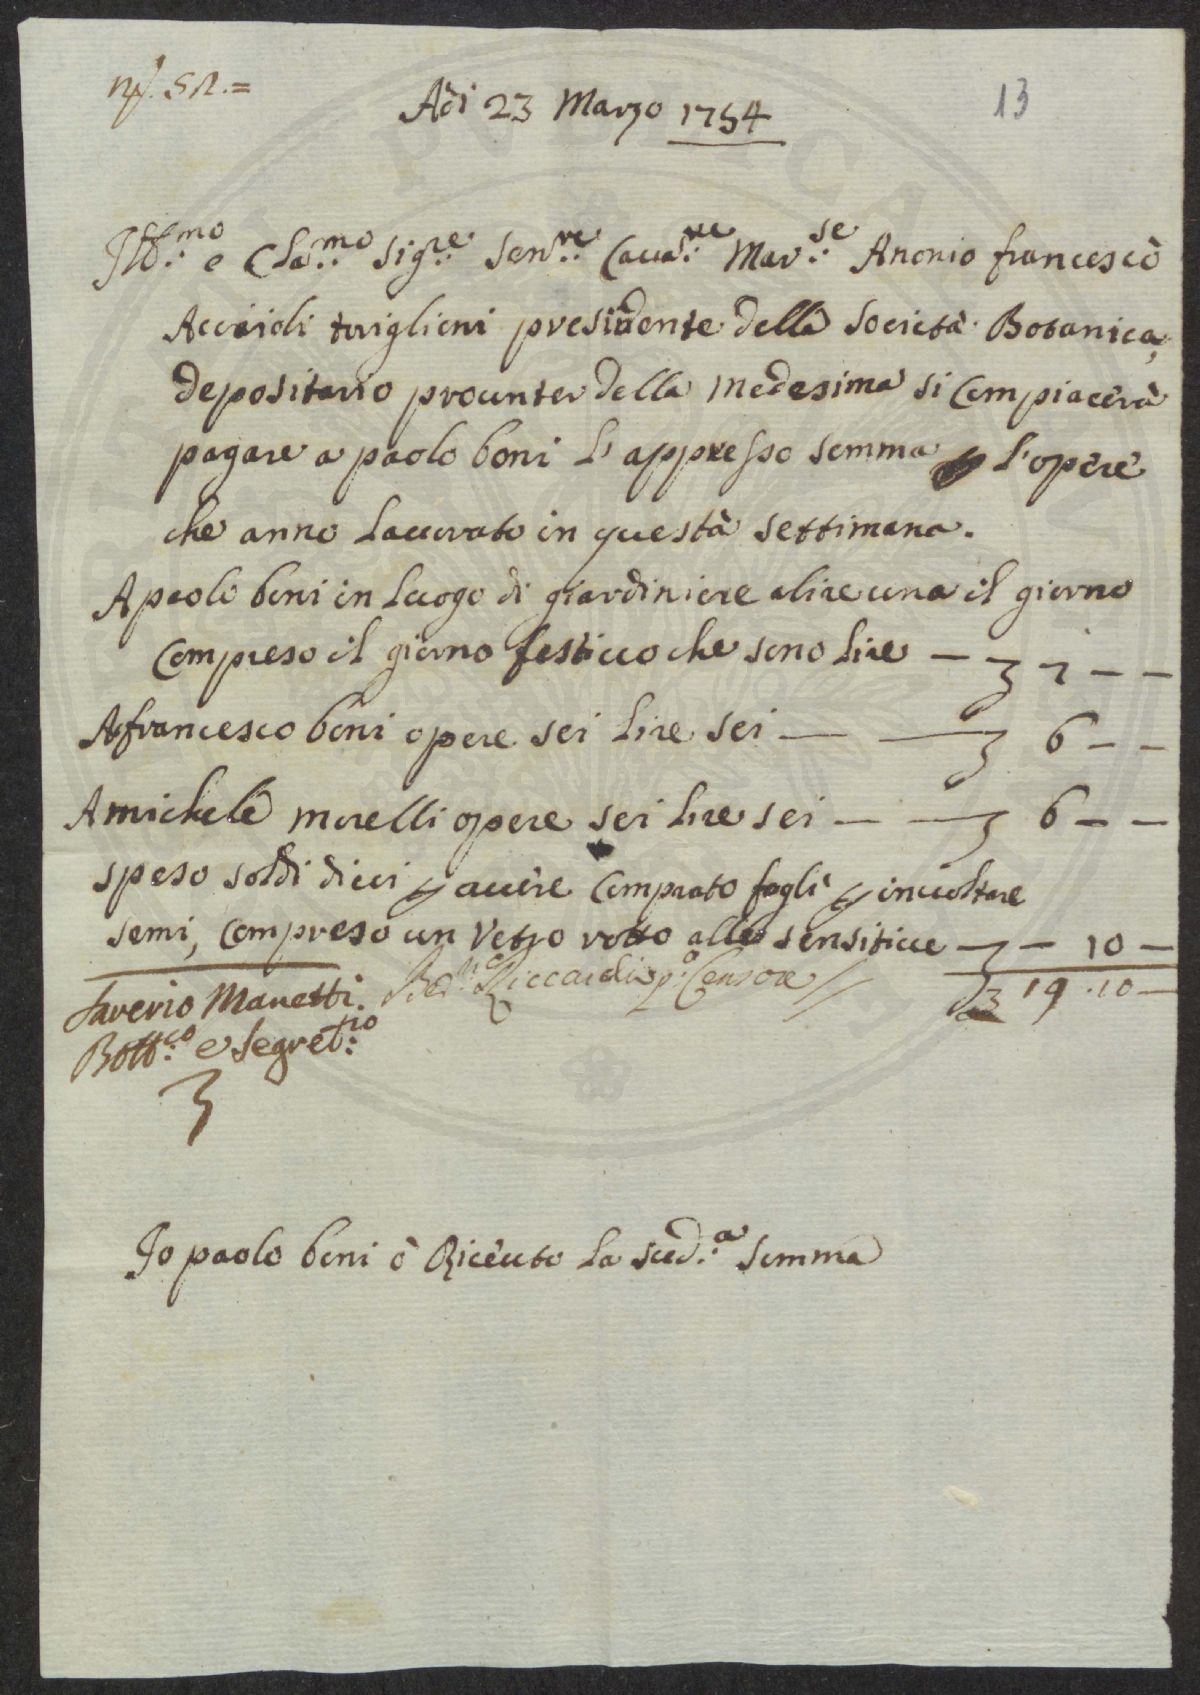 Adi 23 Marzo 1754
13
Ill.mo e Cla.mo Sig.re Sen.re Caua.re Mar.se Anonio francesco
Acciaioli toriglioni presidente della Società Botanica,
depositario prounter della medesima si Compiacerà
pagare a paolo boni l'appresso Somma l'opere
che anno lauorato in questa settimana.
A paolo boni in luogo di giardiniere a lire una il giorno
Compreso il giorno festiuo che sono lire — 7 — —
A francesco boni opere sei lire sei — — 6 — —
A michele morelli opere sei lire sei — — 6 — —
speso soldi dieci p auere Comprato fogli p inuoltare
semi, Compreso un Vetro rotto alle sensitiue — — 10 —
19 .10 —
Sauerio Manetti Riccardi p.o Censore
Bott.co e Segret.rio
Io paolo boni ò Riceuto la sud.a somma